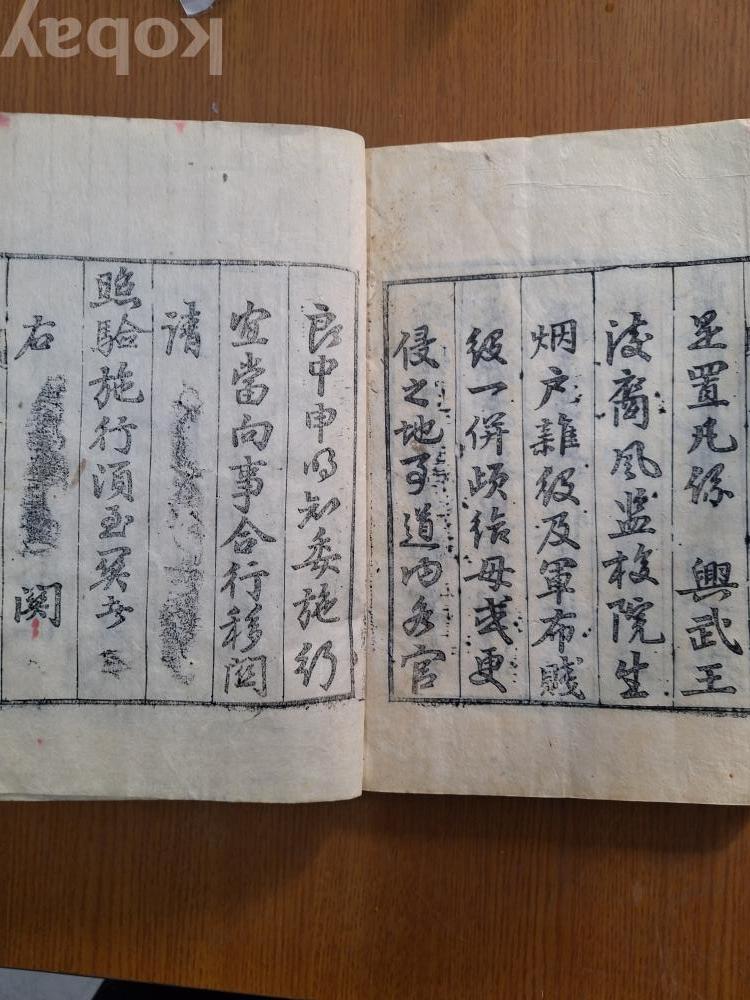 是置凡係 興武王
後裔風监校院生
烟户雜役及軍布賤
役一併頉給毋或更
侵之地事道内各官
良中申明知委施行
宜當向事合行移關
請
照驗施行須至關者
右 關
kobay